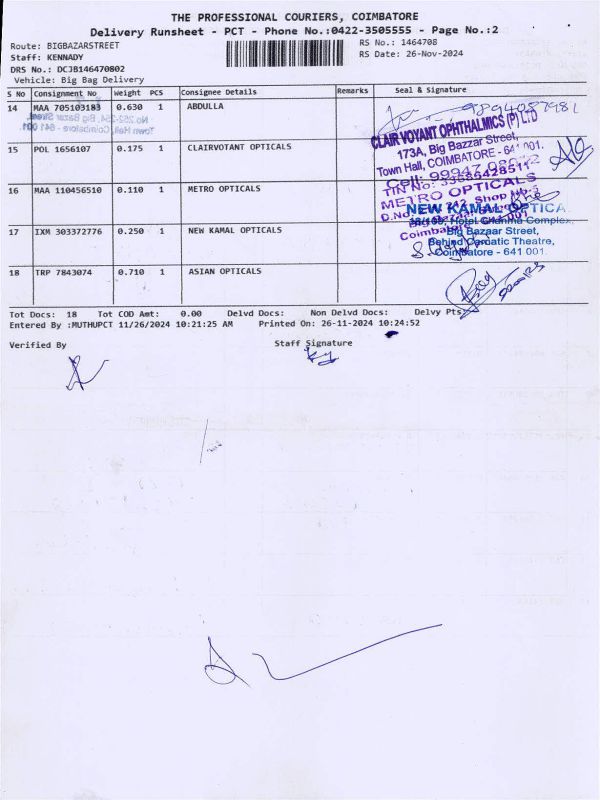 THE PROFESSIONAL COURIERS, COIMBATORE
Delivery Runsheet - PCT - Phone No.:0422-3505555 - Page No.:2
Route: BIGBAZARSTREET RS No.: 1464708
Staff: KENNADY RS Date: 26-Nov-2024
DRS No.: DCJB146470802
Vehicle: Big Bag Delivery
S No Consignment No Weight PCS Consignee Details Remarks Seal & Signature
14 MAA 705103183 0.630 1 ABDULLA
9894087981
No 252-254, Big Bazar Street,
Town Hall, Coimbatore - 641 001.
CLAIR VOYANT OPHTHALMICS (P) LTD
173A, Big Bazzar Street,
Town Hall, COIMBATORE - 641 001.
15 POL 1656107 0.175 1 CLAIRVOTANT OPTICALS
16 MAA 110456510 0.110 1 METRO OPTICALS
TIN No: 33585428511
METRO OPTICALS
17 IXM 303372776 0.250 1 NEW KAMAL OPTICALS
NEW KAMAL OPTICA
Big Bazaar Street,
Coimbatore - 641 001.
18 TRP 7843074 0.710 1 ASIAN OPTICALS
Tot Docs: 18 Tot COD Amt: 0.00 Delvd Docs: Non Delvd Docs: Delvy Pts:
Entered By :MUTHUPCT 11/26/2024 10:21:25 AM Printed On: 26-11-2024 10:24:52
Verified By Staff Signature